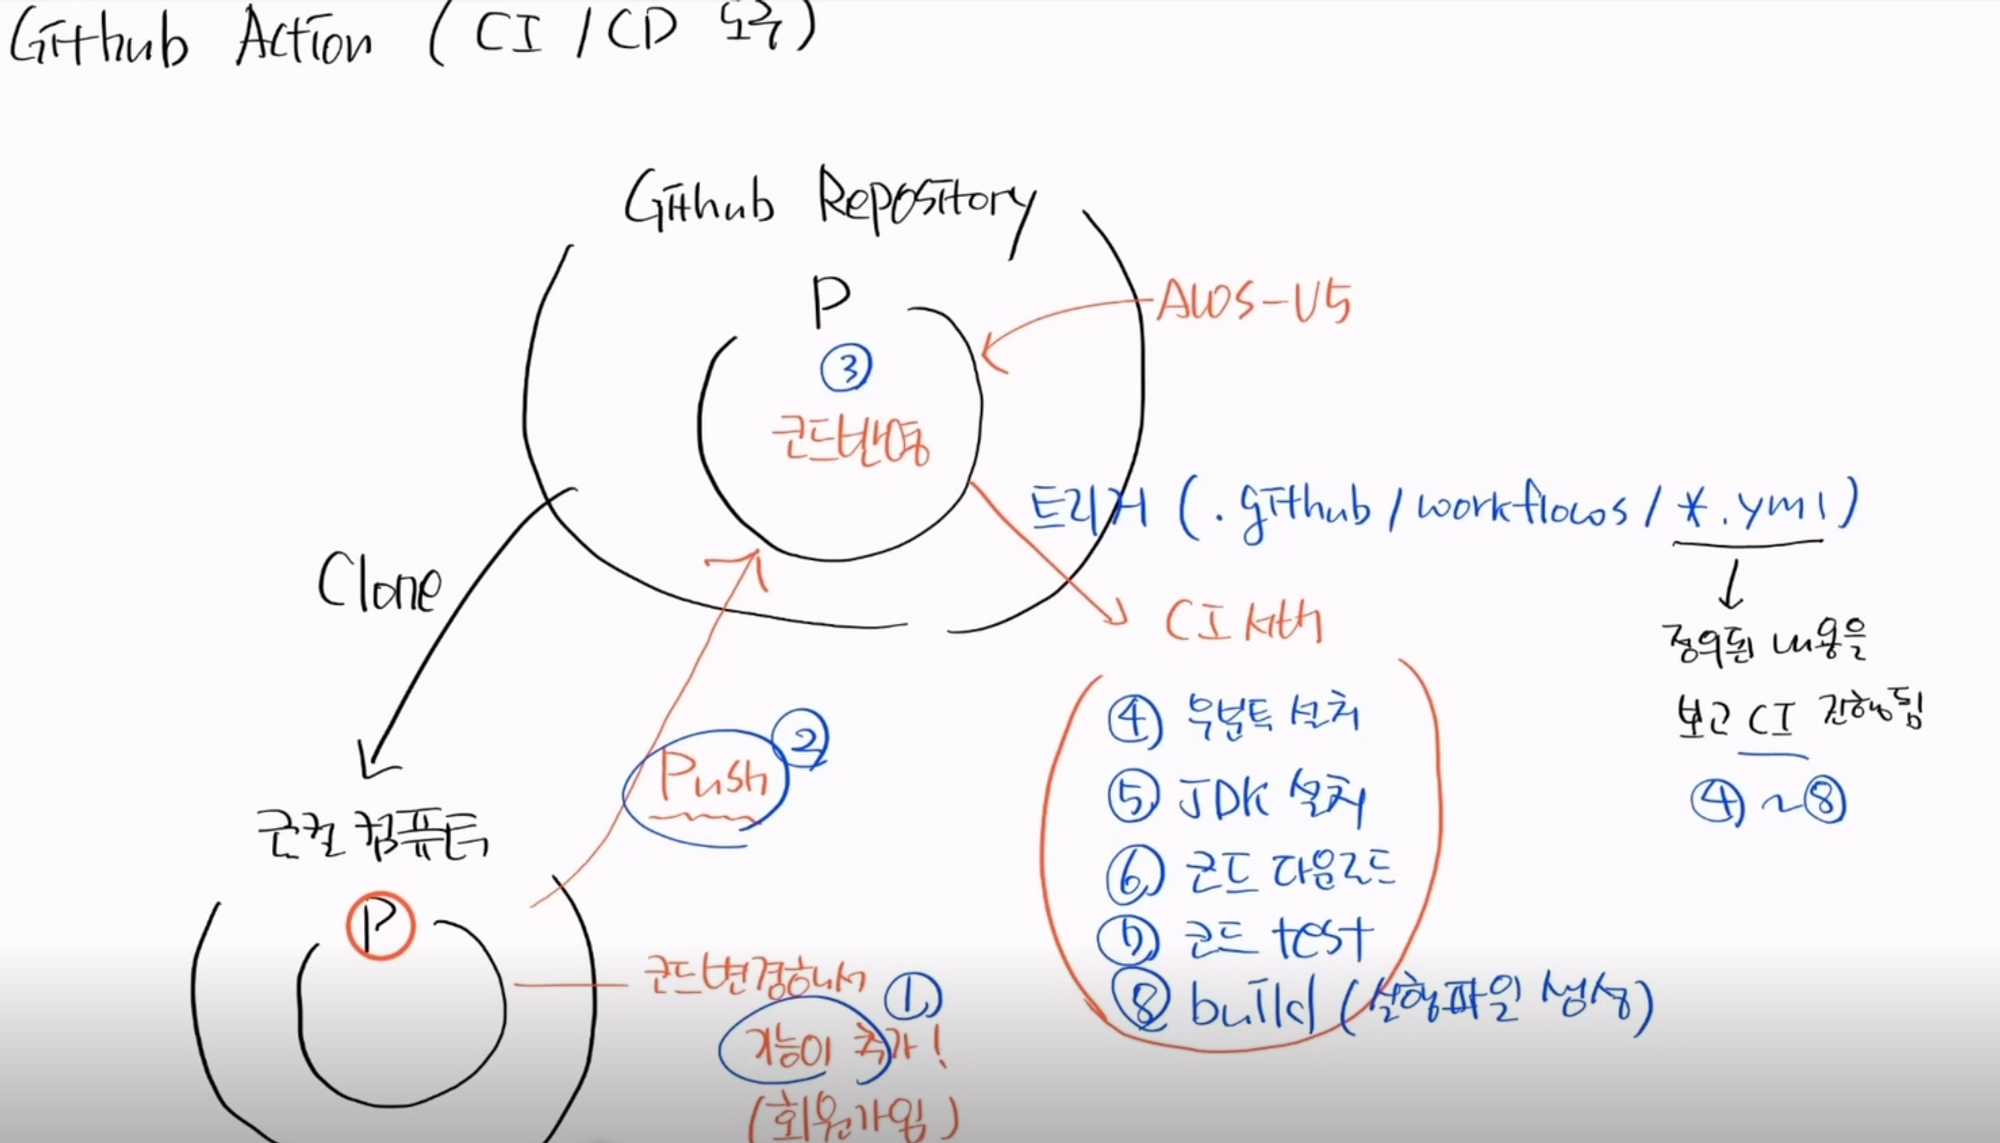 Github Action ( CI / CD 도구)
Github Repository
P
AWS-V5
③
코드반영
트리거 ( .github / workflows / *.yml )
Clone
CI 서버
정의된 내용을
보고 CI 진행됨
④ ~ ⑧
④ 우분투 설치
⑤ JDK 설치
⑥ 코드 다운로드
⑦ 코드 test
⑧ build (실행파일 생성)
Push ②
로컬 컴퓨터
P
코드변경해서 ①
기능이 추가!
(회원가입)